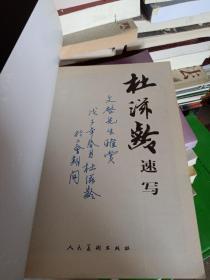 杜滋齡
速写
先生雅赏
戊子年春月杜滋龄
人民美术出版社